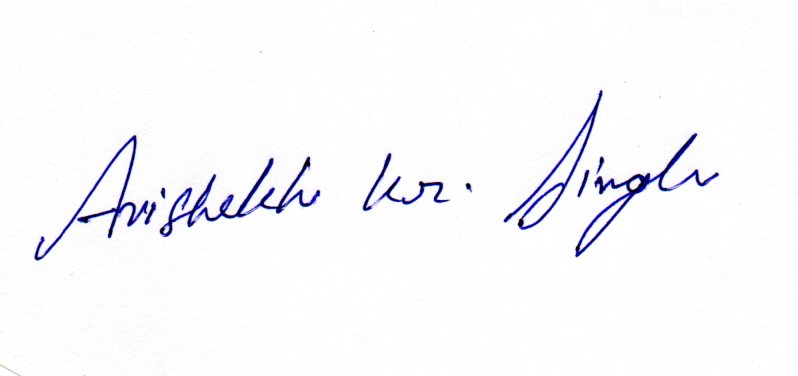 Avishekh kr. Singh